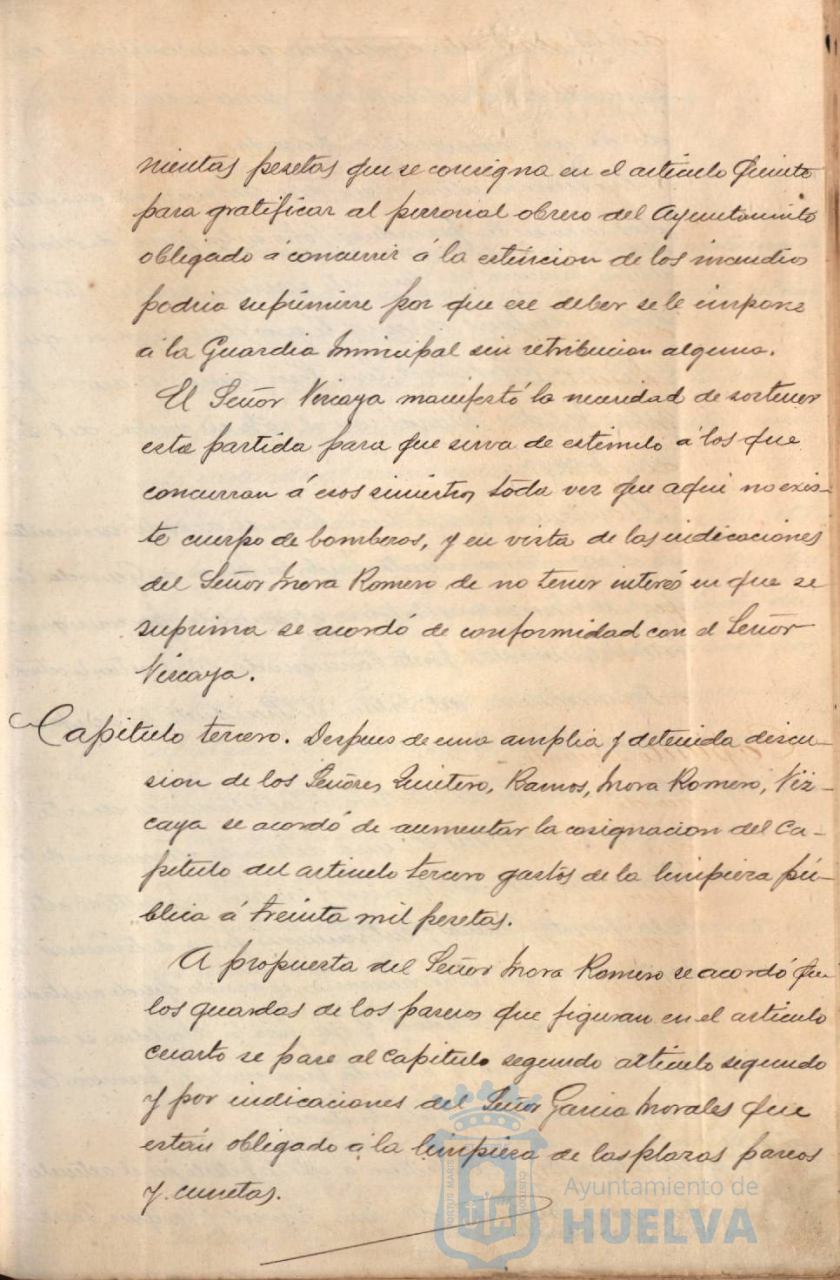 nientas pesetas que se consigna en el articulo quinto
para gratificar al personal obrero del Ayuntamiento
obligado á concurrir á la estincion de los incendios
podria suprimirse por que ese deber se le impone
á la Guardia Municipal sin retribucion alguna.
El Señor Vizcaya manifestó la necesidad de sostener
esta partida para que sirva de estimulo á los que
concurran á esos siniestros toda vez que aqui no exis-
te cuerpo de bomberos, y en vista de las indicaciones
del Señor Mora Romero de no tener interés en que se
suprima se acordó de conformidad con el Señor
Vizcaya.
Capitulo tercero. Despues de una amplia y detenida discu-
sion de los Señores Quintero, Ramos, Mora Romero, Viz-
caya se acordó de aumentar la cosignacion del Ca-
pitulo del articulo tercero gastos de la limpieza pú-
blica á treinta mil pesetas.
A propuesta del Señor Mora Romero se acordó que
los guardas de los paseos que figuran en el articulo
cuarto se pase al capitulo segundo articulo segundo
y por indicaciones del Señor Garcia Morales que
están obligado á la limpieza de las plazas paseos
y cunetas.
PORTUS MARIS
Ayuntamiento de
HUELVA